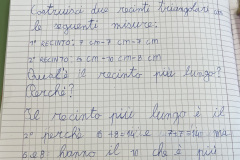 Costruisci due recinti triangolari con
le seguenti misure:
1° RECINTO: 7 cm-7 cm-7 cm
2° RECINTO: 6 cm-10 cm-8 cm
Qual'è il recinto più lungo?
Perché?
Il recinto più lungo è il
2° perché 6+8=14 e 7+7=14 ma
6 e 8 hanno il 10 che è più